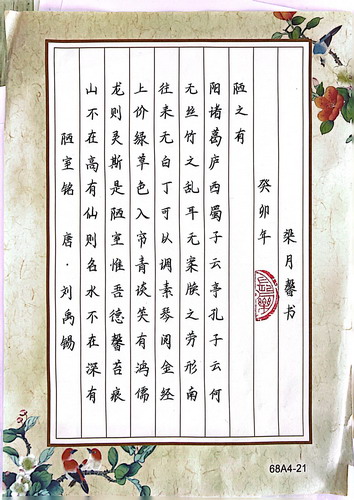 陋室铭 唐·刘禹锡
山不在高有仙则名水不在深有
龙则灵斯是陋室惟吾德馨苔痕
上价绿草色入帘青谈笑有鸿儒
往来无白丁可以调素琴阅金经
无丝竹之乱耳无案牍之劳形南
阳诸葛庐西蜀子云亭孔子云何
陋之有
癸卯年
梁月馨书
68A4-21